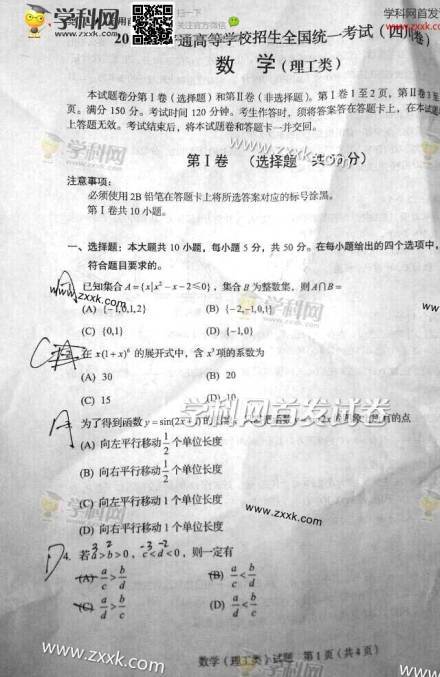 学科网
www.zxxk.com
扫一下
关注官方微信
学科网首发
www.zxxk.com
20 通高等学校招生全国统一考试(四川卷)
数 学(理工类)
本试题卷分第Ⅰ卷(选择题)和第Ⅱ卷(非选择题)。第Ⅰ卷1至2页,第Ⅱ卷3至
页。满分150分。考试时间120分钟。考生作答时,须将答案答在答题卡上,在本试题
上答题无效。考试结束后,将本试题卷和答题卡一并交回。
第Ⅰ卷 (选择题 共50分)
注意事项:
必须使用2B铅笔在答题卡上将所选答案对应的标号涂黑。
第Ⅰ卷共10小题。
一、选择题:本大题共10小题,每小题5分,共50分。在每小题给出的四个选项中,
符合题目要求的。
A 已知集合 A={x|x²-x-2≤0},集合 B 为整数集,则 A∩B=
(A) {-1,0,1,2} (B) {-2,-1,0,1}
(C) {0,1} (D) {-1,0}
C 在 x(1+x)⁶ 的展开式中,含 x³ 项的系数为
(A) 30 (B) 20
(C) 15 (D) 10
学科网首发试卷
A 为了得到函数 y=sin(2x+1) 的 的点
(A) 向左平行移动 1/2 个单位长度
(B) 向右平行移动 1/2 个单位长度
(C) 向左平行移动 1 个单位长度
(D) 向右平行移动 1 个单位长度
www.zxxk.com
3 2 -3 -2
D 4. 若 a>b>0,c<d<0,则一定有
(A) a/c > b/d (B) a/c < b/d
(C) a/d > b/c (D) a/d < b/c
数学(理工类)试题 第1页(共4页)
www.zxxk.com
学科网